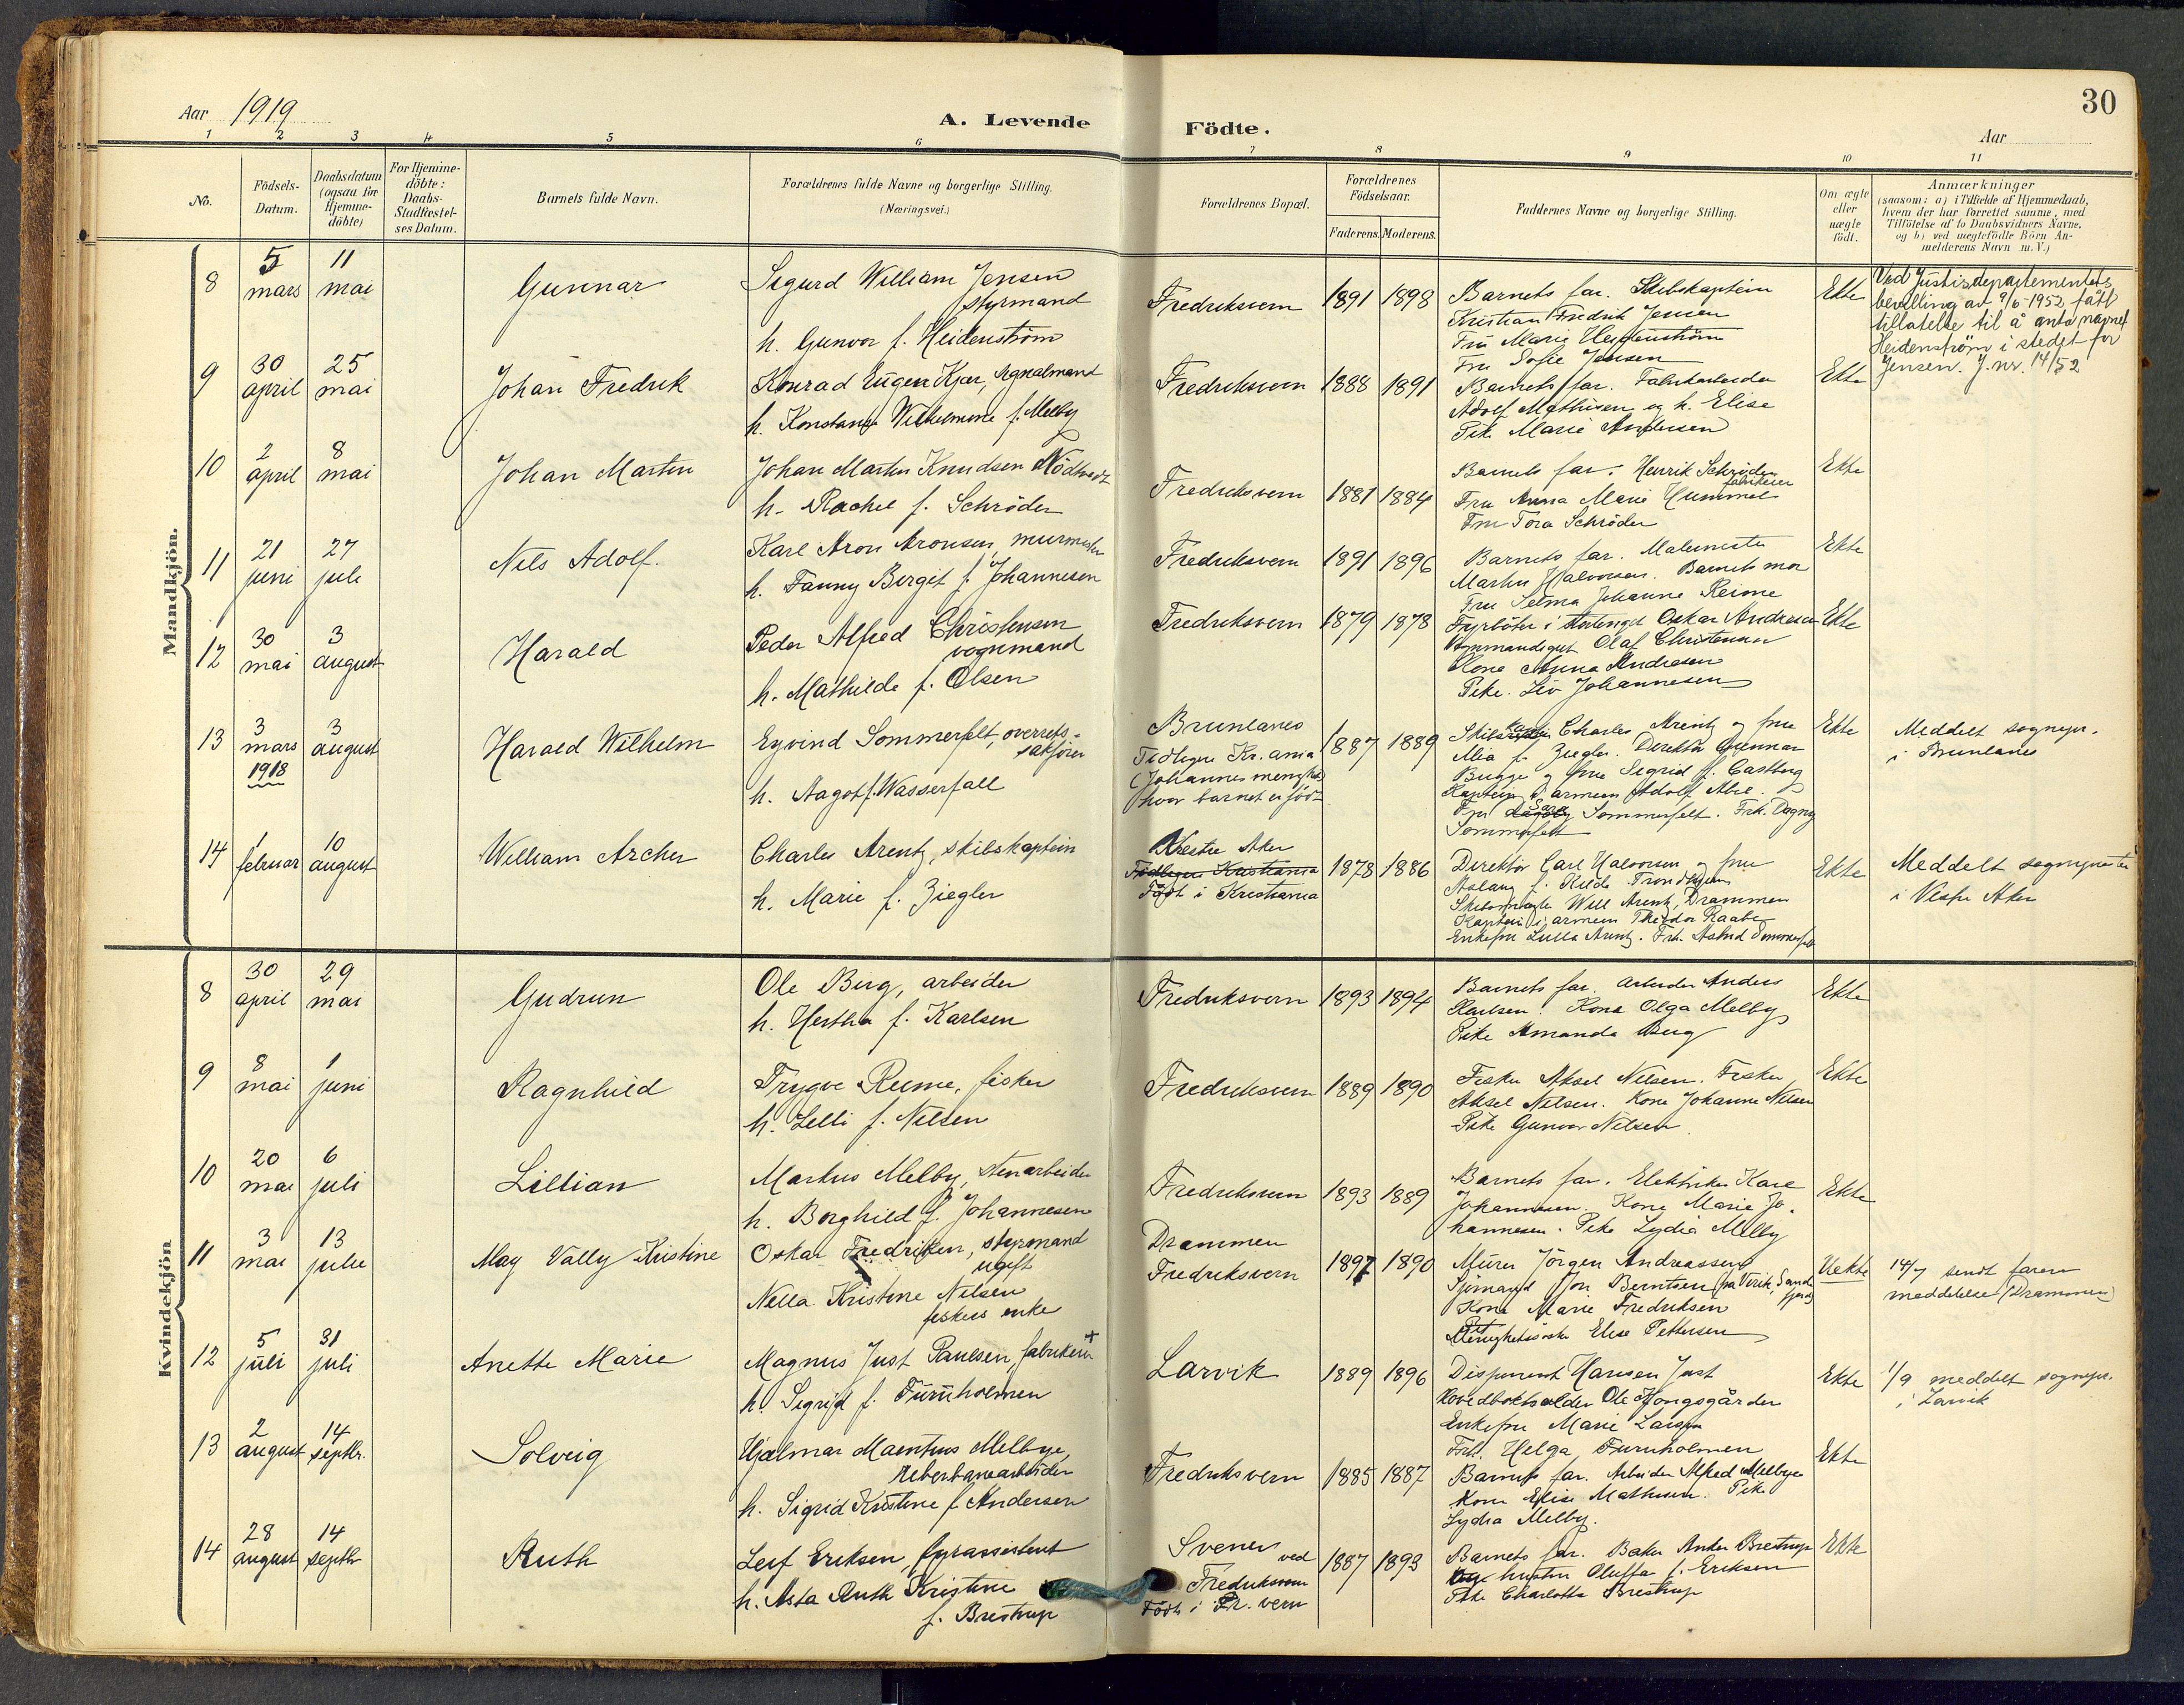 30
Aar 1919
A. Levende
Födte.
Aar
1 2 3 4 5 6 7 8 9 10 11
No.
Födsels-
Datum.
Daabsdatum
(ogsaa for
Hjemme-
döbte)
For Hjemme-
döbte:
Daabs-
Stadfæstel-
ses Datum.
Barnets fulde Navn.
Forældrenes fulde Navne og borgerlige Stilling.
(Næringsvei.)
Forældrenes Bopæl.
Forældrenes
Födselsaar.
Faderens. Moderens.
Faddernes Navne og borgerlige Stilling.
Om ægte
eller
uægte
födt.
Anmærkninger
(saasom: a) i Tilfælde af Hjemmedaab,
hvem der har forrettet samme, med
Tilföielse af to Daabsvidners Navne.
og b) ved uægtefödte Börn An-
melderens Navn m. V.)
Mandkjön.
8
5
mars
11
mai
Gunnar
Sigurd William Jensen
styrmand
h. Gunvor f. Heidenström
Fredriksvern
1891 1898
Barnets far. Skibskaptein
Kristian Fredrik Jensen
Fru Marie Heidenström
Fru Sofie Jensen
Ekte
Ved Justisdepartementets
bevilling av 9/6-1952 fått
tillatelse til å anta navnet
Heidenström i stedet for
Jensen. J.nr. 14/52
9
30
april
25
mai
Johan Fredrik
Konrad Eugen Kjær, signalmand
h. Konstance Wilhelmine f. Melby
Fredriksvern
1888 1891
Barnets far. Fabrikarbeider
Adolf Mathisen og h. Elise
Pike Marie Andersen
Ekte
10
2
april
8
mai
Johan Martin
Johan Martin Knudsen
h. Rachel f. Schröder
Fredriksvern
1881 1884
Barnets far. Henrik Schröder
fabrikeier
Fru Anna Marie Hummel
Fru Tora Schröder
Ekte
11
21
juni
27
juli
Nils Adolf.
Karl Aron Aronsen, murmester
h. Fanny Birgit f. Johannesen
Fredriksvern
1891 1896
Barnets far. Malermester
Martin Halvorsen. Barnets mor
Fru Selma Johanne Reime
Ekte
12
30
mai
3
august
Harald
Peder Alfred Christensen
vognmand
h. Mathilde f. Olsen
Fredriksvern
1879 1878
Fyrböter i Stortinget Oskar Andresen
Olaf Christensen
Kone Anna Andresen
Pike. Liv Johannesen
Ekte
13
3
mars
1918
3
august
Harald Wilhelm
Eyvind Sommerfelt, overrets-
sakförer
h. Aagot f. Wasserfall
Brunlanes
Tidligere Kr.ania
(Johannes menighet
hvor barnet er född
1887 1889
Charles Arentz og frue
Mia f. Ziegler. Direktör Gunnar
Bugge og frue Sigrid f. Castberg
Kaptein i armeen Adolf
Fru Sommerfelt. Frk. Dagny
Sommerfelt
Ekte
Meddelt sognepr.
i Brunlanes
14
1
februar
10
august
William Archer
Charles Arentz, skibskaptein
h. Marie f. Ziegler
Vestre Aker
Tidligere Kristiania
Född i Kristiania
1878 1886
Direktör Carl Halvorsen og frue
Aslaug f. Kilde Trondhjem
Skibsmægler Will Arentz, Drammen
Kaptein i armeen Theodor Raabe
Enkefru Lulla Arentz. Frk. Astrid Sommerfelt
Ekte
Meddelt sognepresten
i Vestre Aker
Kvindekjön
8
30
april
29
mai
Gudrun
Ole Berg, arbeider
h. Hertha f. Karlsen
Fredriksvern
1893 1894
Barnets far. Arbeider Anders
Karlsen. Kona Olga Melby
Pike Amanda Berg
Ekte
9
8
mai
1
juni
Ragnhild
Trygve Reime, fisker
h. Lelli f. Nilsen
Fredriksvern
1889 1890
Fisker Aksel Nilsen. Fisker
Aksel Nilsen. Kone Johanne Nilsen
Pike Gunvor Nilsen
Ekte
10
20
mai
6
juli
Lillian
Markus Melby, stenarbeider
h. Borghild f. Johannesen
Fredriksvern
1893 1889
Barnets far. Elektriker Kare
Johannesen. Kone Marie Jo-
hannesen. Pike Lydia Melby
Ekte
11
3
mai
13
juli
May Vally Kristine
Oskar Fredriksen, styrmand
ugift
Nella Kristine Nilsen
fiskers enke
Drammen
Fredriksvern
1897 1890
Murer Jörgen Andreassen
Sjömand Jon Berntsen fra Virik, Sande-
fjord
Kone Marie Fredriksen
Menighetssöster Elise Pettersen
Uekte
14/7 sendt faren
meddelelse (Drammen)
12
5
juli
31
juli
Anette Marie
Magnus Just Paulsen, fabrikeier +
h. Sigrid f. Furuholmen
Larvik
1889 1896
Disponent Hansen Just
Hovedbokholder Ole Kongsgården
Enkefru Marie Larsen
Frk. Helga Furuholmen
Ekte
1/9 meddelt sognepr.
i Larvik
13
2
august
14
septbr.
Solveig
Hjalmar Marentius Melbye,
Reberbanearbeider
h. Sigrid Kristine f. Andersen
Fredriksvern
1885 1887
Barnets far. Arbeider Alfred Melbye
Kone Elise Mathisen. Pike
Lydia Melby.
Ekte
14
28
august
14
septbr
Ruth
Leif Eriksen, fyrassistent
h. Asta Ruth Kristine
f. Brestrup
Svenør
ved
Fredriksvern
Född i Fr. vern
1887 1893
Barnets far. Baker Anker Brestrup
hustru Oluffa f. Eriksen
Pike Charlotte Brestrup
Ekte